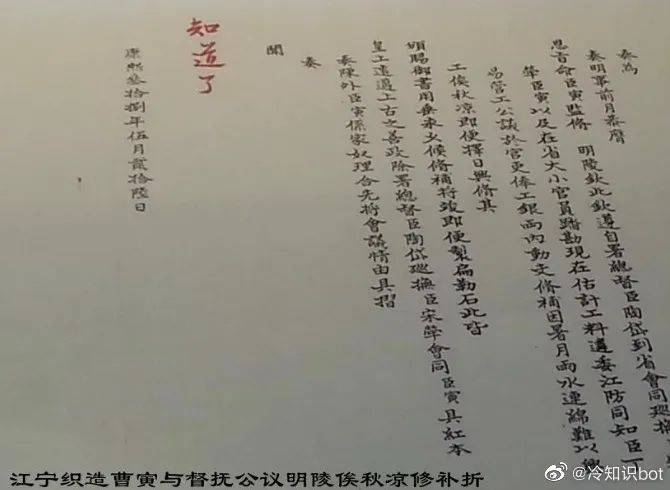 奏為
奏明事前月恭膺
恩旨命臣寅監修　明陵欽此欽遵自署總督臣陶岱到省會同廵撫
犖臣寅以及在省大小官員踏勘現在估計工料遴委江防同知臣丁
易管工公議於官吏俸工銀兩內動支修補因署月雨水連綿難以
工俟秋凉即便擇日興修其
頒賜御書用垂永久候修補將竣即便製扁勒石此皆
皇上遠邁上古之善政除署總督臣陶岱廵撫臣宋犖會同臣寅具紅本
奏陳外臣寅係家奴理合先將會議情由具摺
奏
聞
知道了
康熙叁拾捌年伍月貳拾陸日
江宁织造曹寅与督抚公议明陵俟秋凉修补折
@冷知识bot